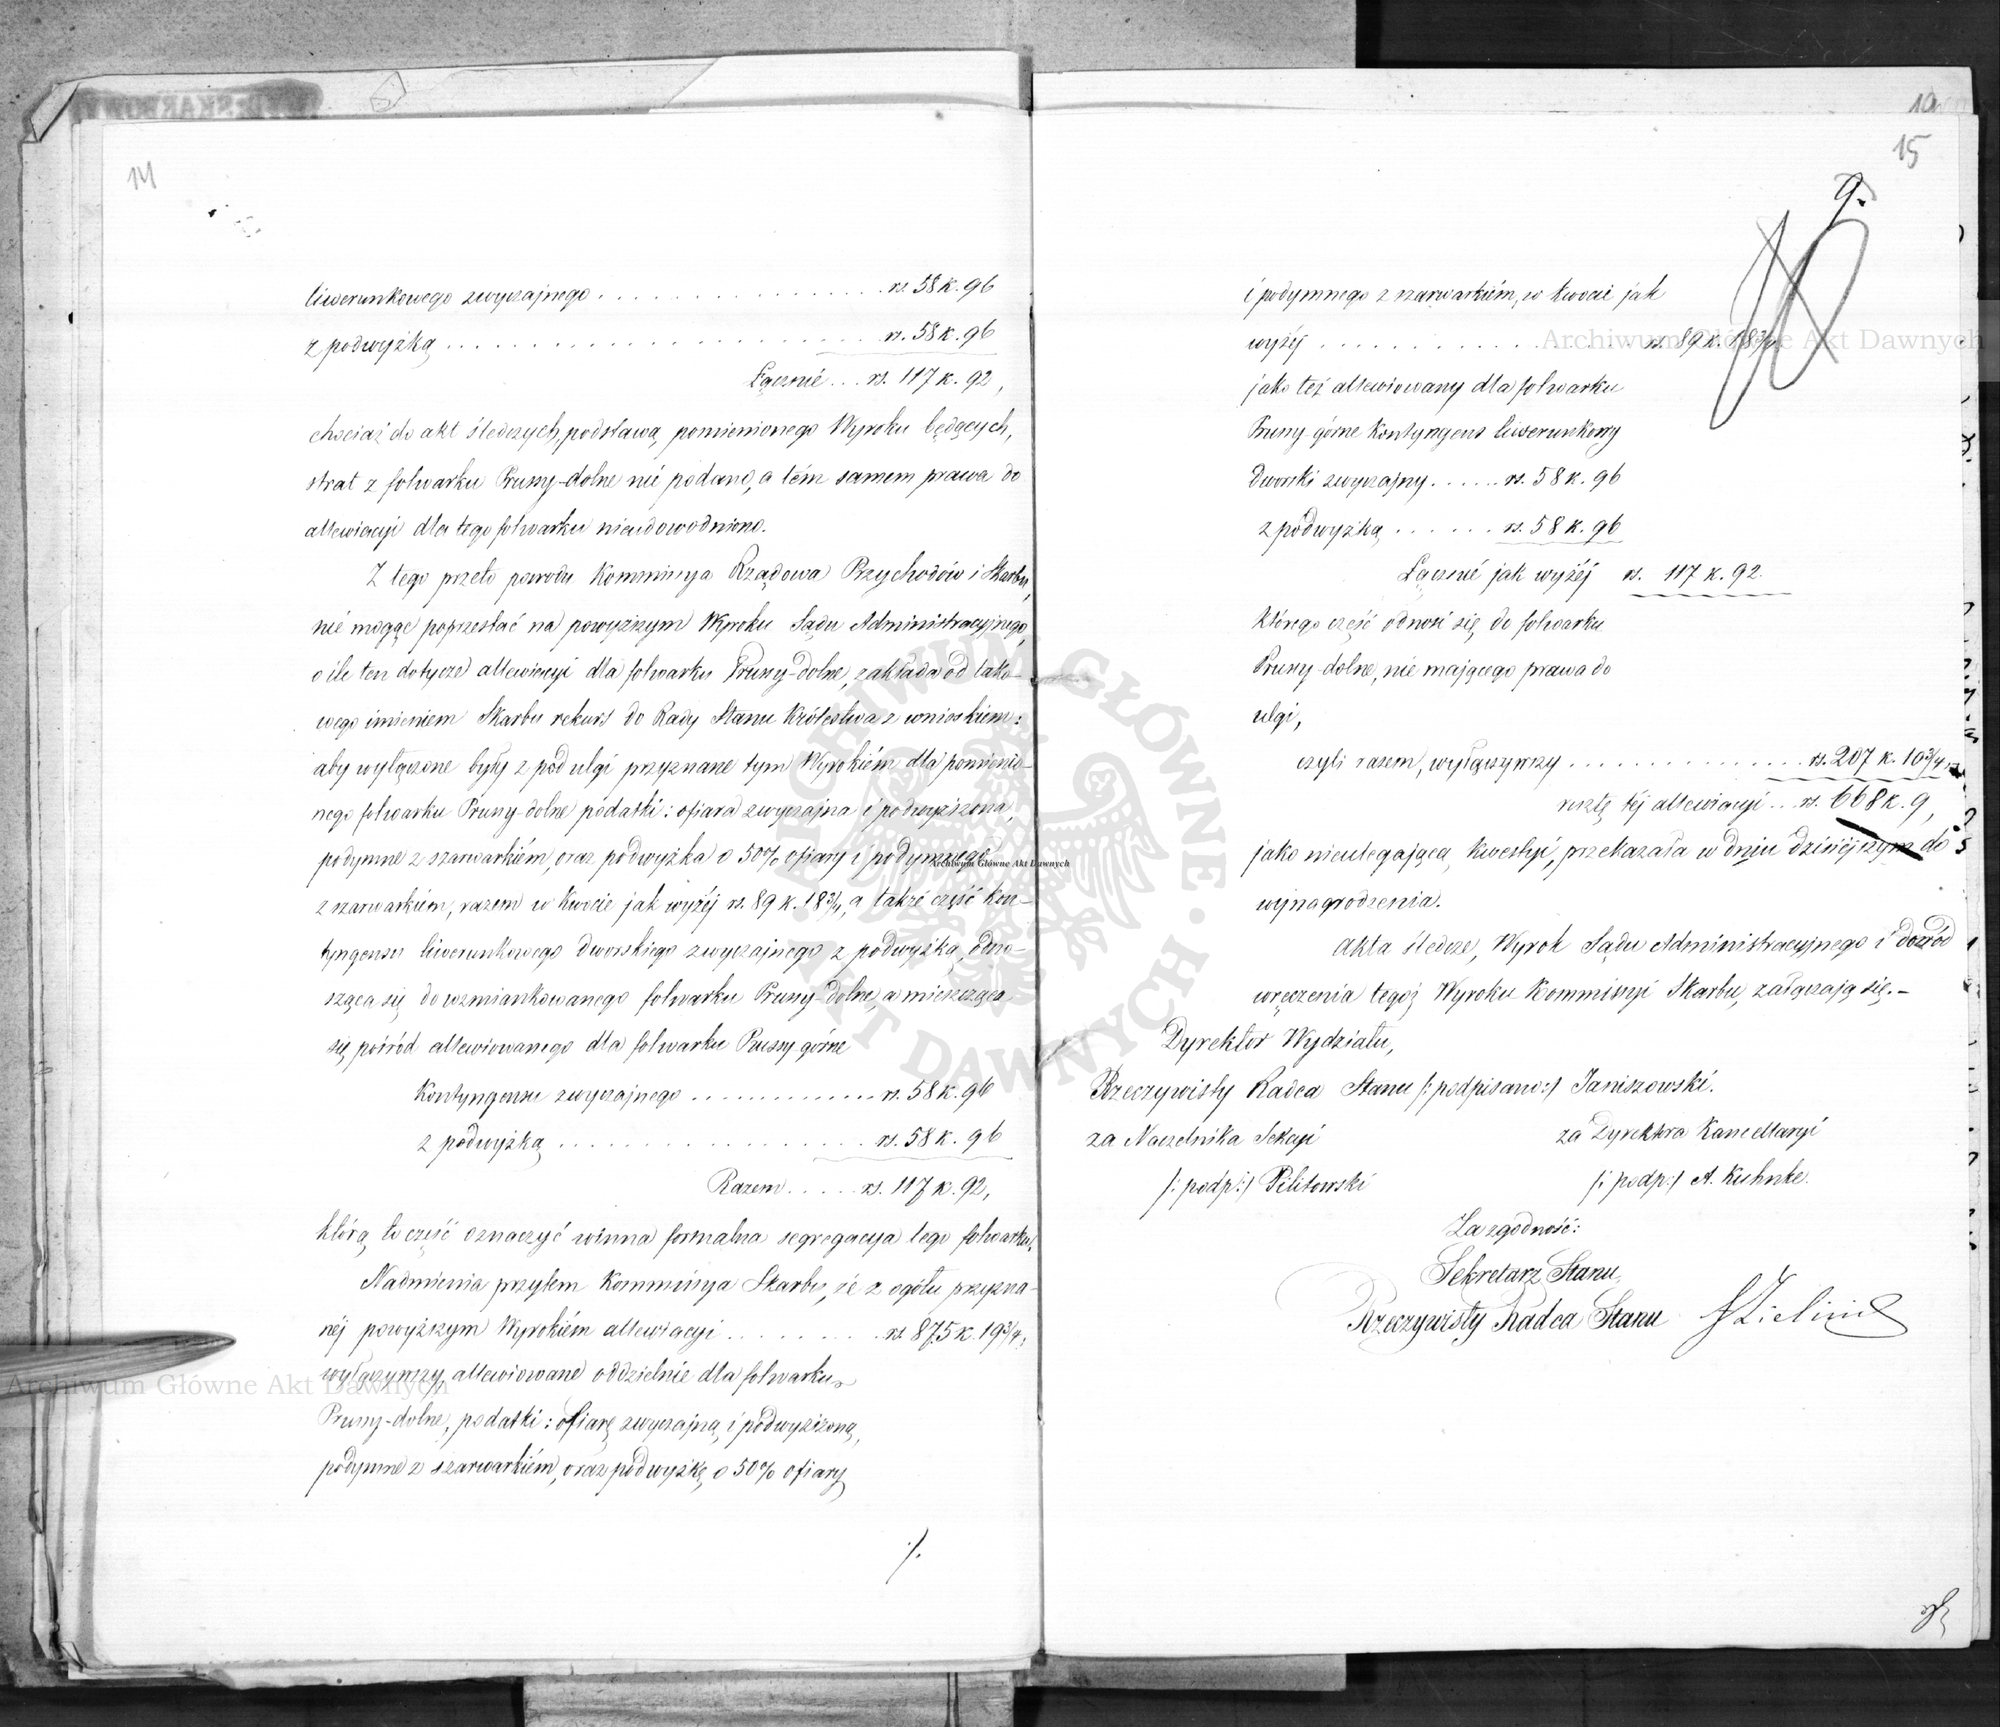 14
liwerunkowego zwyczajnego . . . . . . . . . . . . . . . . . rs. 58 k. 96
z podwyżką . . . . . . . . . . . . . . . . . . . . . . . . rs. 58 k. 96
Łącznie . . . rs. 117 k. 92,
chociaż do akt śledczych, podstawą pomienionego Wyroku będących,
strat z folwarku Prusy-dolne nie podano, a tém samem prawa do
allewiacyi dla tego folwarku nieudowodniono.
Z tego przeto powodu Kommissya Rządowa Przychodów i Skarbu,
nie mogąc poprzestać na powyższym Wyroku Sądu Administracyjnego,
o ile ten dotycze allewiacyi dla folwarku Prusy-dolne, zakłada od tako-
wego imieniem Skarbu rekurs do Rady Stanu Królestwa z wnioskiem:
aby wyłączone były z pod ulgi przyznane tym Wyrokiém dla pomienio-
nego folwarku Prusy-dolne podatki: ofiara zwyczajna i podwyższona,
podymne z szarwarkiém, oraz podwyżka o 50% ofiary i podymnego
z szarwarkiém, razem w kwocie jak wyżéj rs. 89 k. 18 3/4, a także część kon-
tyngensu liwerunkowego dworskiego zwyczajnego z podwyżką, odno-
sząca się do wzmiankowanego folwarku Prusy-dolne, a mieszcząca
się pośród allewiowanego dla folwarku Prusy górne
Kontyngensu zwyczajnego . . . . . . . . . . . . . . rs. 58 k. 96
z podwyżką . . . . . . . . . . . . . . . . . . . rs. 58 k. 96
Razem . . . . . rs. 117 k. 92,
którą to część oznaczyć winna formalna segregacya tego folwarku.
Nadmienia przytem Kommissya Skarbu, że z ogółu przyzna-
néj powyższym Wyrokiém allewiacyi . . . . . . . . . rs. 875 k. 19 3/4,
wyłączywszy allewiowane oddzielnie dla folwarku
Prusy-dolne, podatki: ofiarę zwyczajną i podwyższoną,
podymne z szarwarkiém, oraz podwyżkę o 50% ofiary
./.
10
15
9.
i podymnego z szarwarkiém, w kwocie jak
wyżéj . . . . . . . . . . . . . . . . . . rs. 89 k. 18 3/4
jako też allewiowany dla folwarku
Prusy-górne Kontyngens liwerunkowy
dworski zwyczajny . . . . . . rs. 58 k. 96
z podwyżką . . . . . . rs. 58 k. 96
Łącznie jak wyżéj rs. 117 k. 92.
którego część odnosi się do folwarku
Prusy-dolne, nie mającego prawa do
ulgi,
czyli razem, wyłączywszy . . . . . . . . . . . . . . rs. 207 k. 10 3/4
resztę téj allewiacyi . . . rs. 668 k. 9,
jako nieulegającą kwestyi, przekazała w dniu dzisiéjszym do
wynagrodzenia.
Akta śledcze, Wyrok Sądu Administracyjnego i dowód
wręczenia tegoż Wyroku Kommissyi Skarbu, załączają się.-
Dyrektor Wydziału,
Rzeczywisty Radca Stanu /:podpisano:/ Janiszowski.
za Naczelnika Sekcyi
za Dyrektora Kancellaryi
/:podp:/ Pilitowski
/:podp:/ A. Kuhnke.
Za zgodność:
Sekretarz Stanu,
Rzeczywisty Radca Stanu
Archiwum Główne Akt Dawnych
Archiwum Główne Akt Dawnych
Archiwum Główne Akt Dawnych
ARCHIWUM GŁÓWNE AKT DAWNYCH